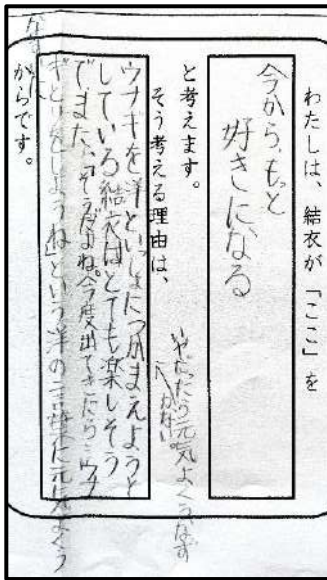 わたしは、結衣が「ここ」を
今から、もっと
好きになる
と考えます。
そう考える理由は、
いやだったら元気よくうなず
かない。
ウナギを洋といっしょにつかまえようと
している結衣はとても楽しそう
でまた、「そうだよね。今度出てきたら、ウナ
ギとりをしようね」という洋の言葉に元気よくう
なず
からです。